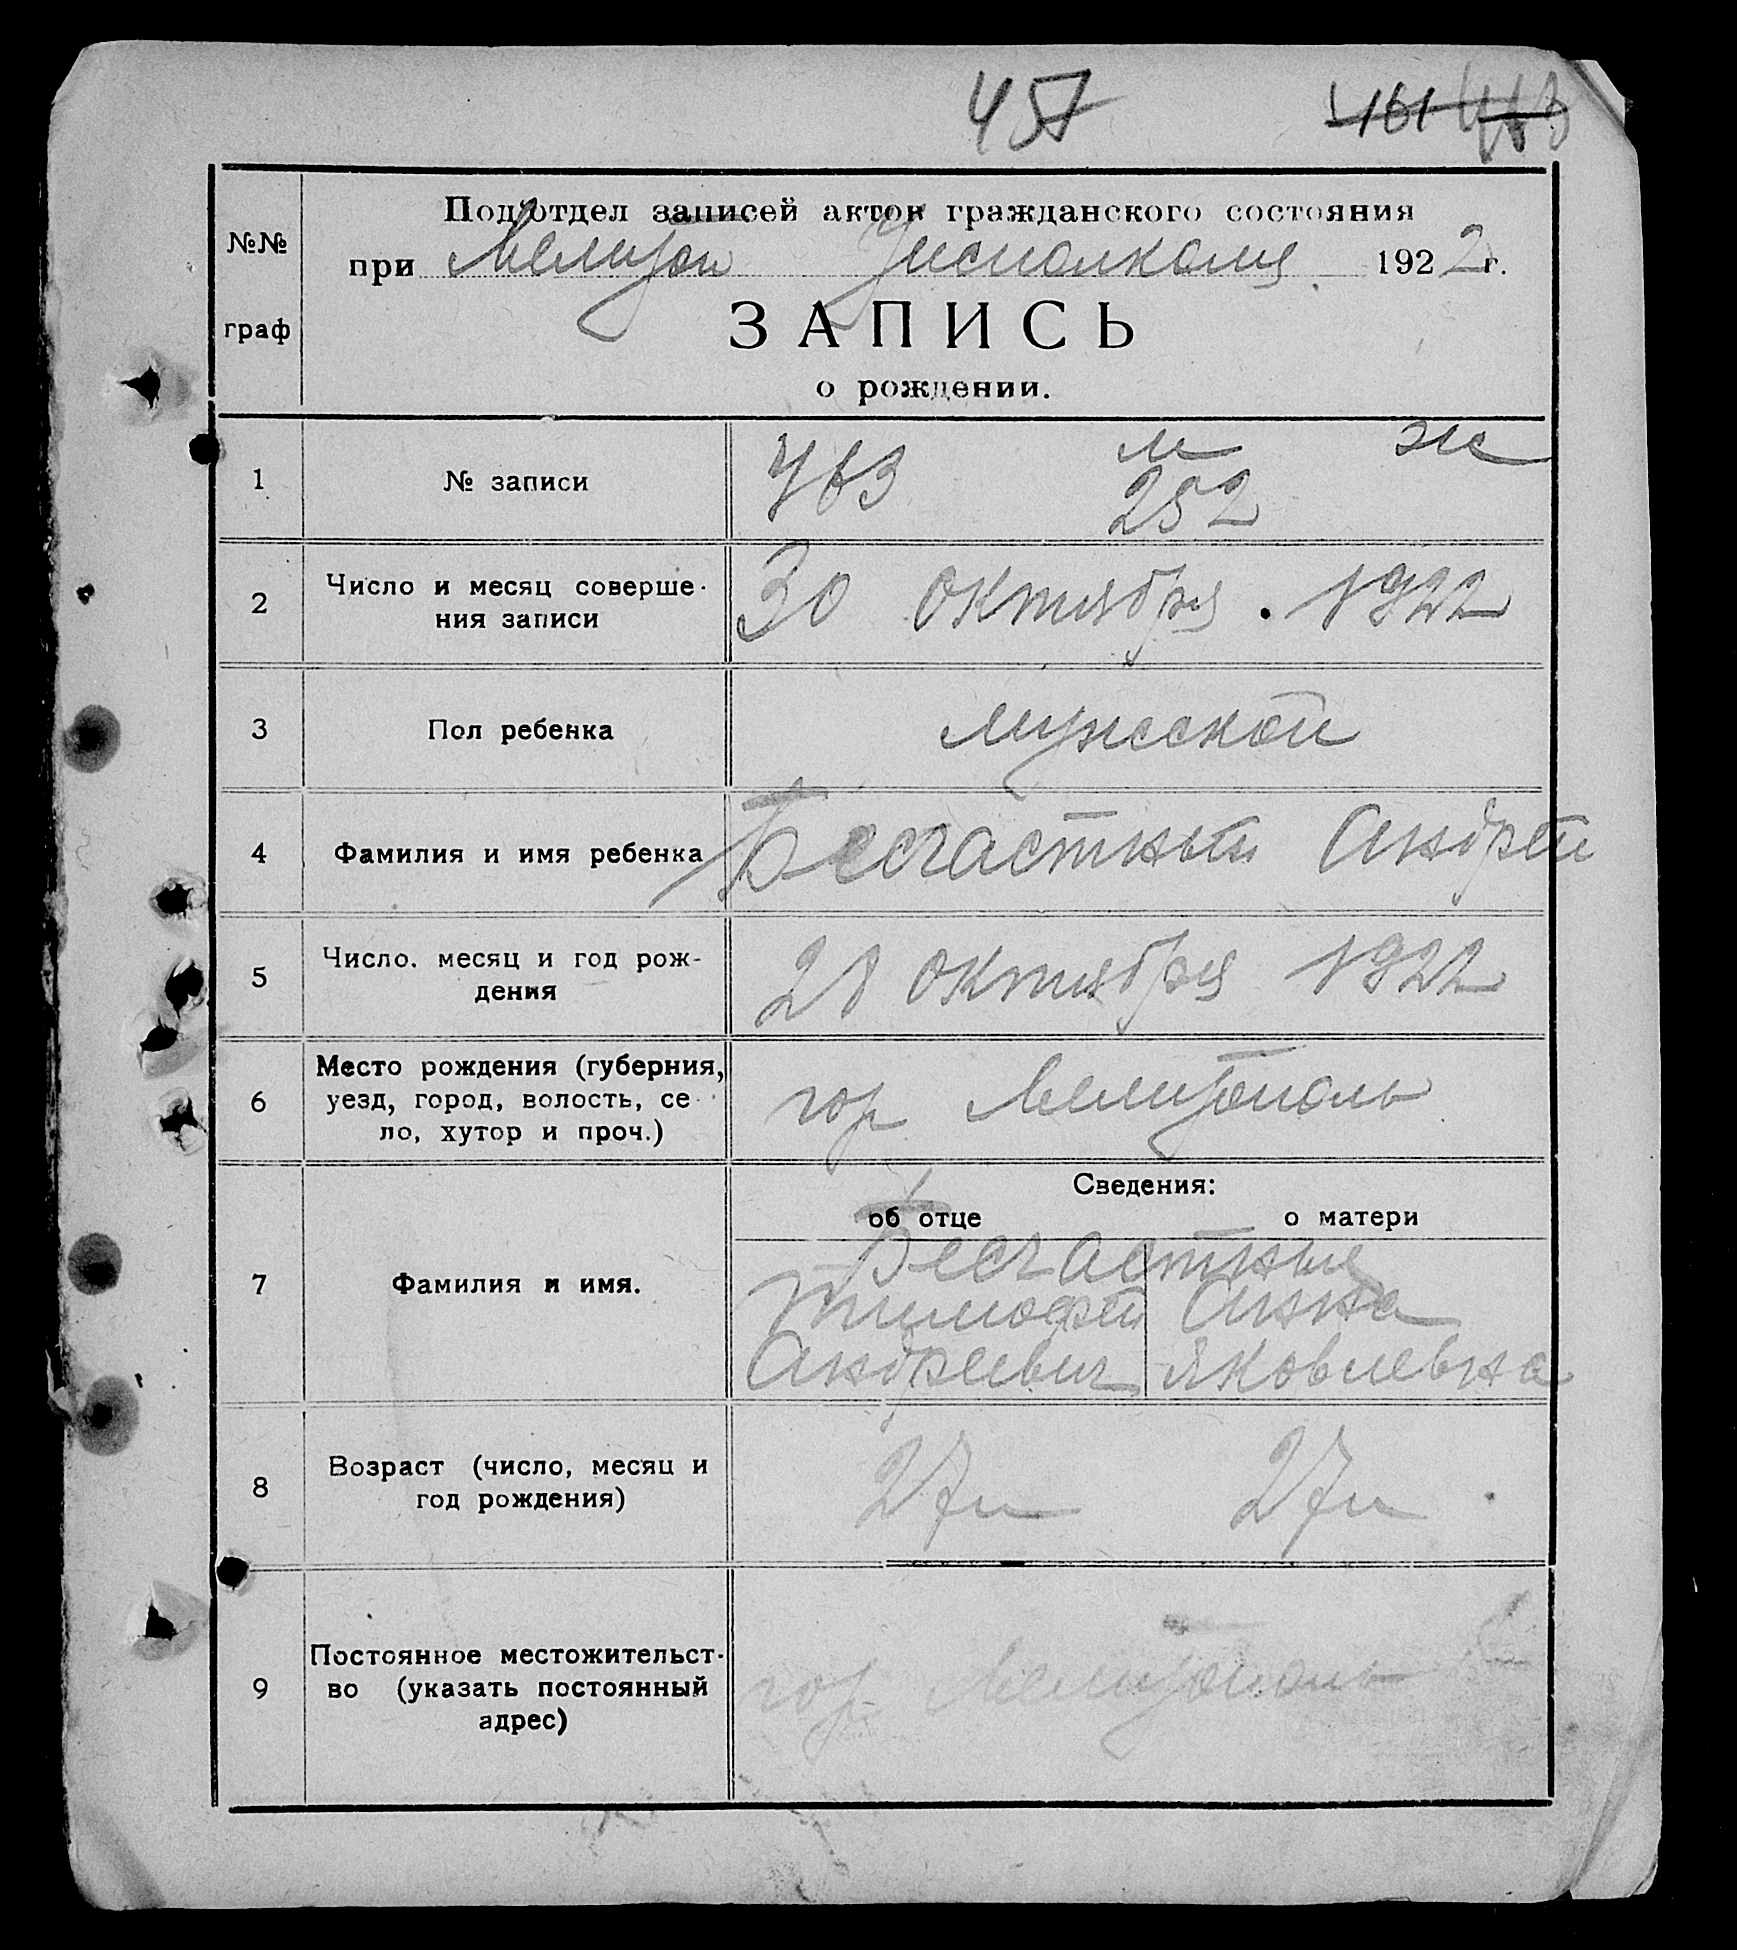 457 461 463
№№ граф
Подотдел записей актов гражданского состояния
при Мелитоп Уисполкома 1922 г.
ЗАПИСЬ
о рождении.
1 № записи 463 м 252 ж
2 Число и месяц соверше-
ния записи 30 октября . 1922
3 Пол ребенка мужской
4 Фамилия и имя ребенка Бесчастный Андрей
5 Число. месяц и год рож-
дения 28 октября 1922
6 Место рождения (губерния,
уезд, город, волость, се
ло, хутор и проч.) гор Мелитополь
Сведения:
об отце о матери
7 Фамилия и имя. Бесчастные
Тимофей Анна
Андреевич Яковлевна
8 Возраст (число, месяц и
год рождения) 27 л 27 л
9 Постоянное местожительст-
во (указать постоянный
адрес) гор Мелитополь